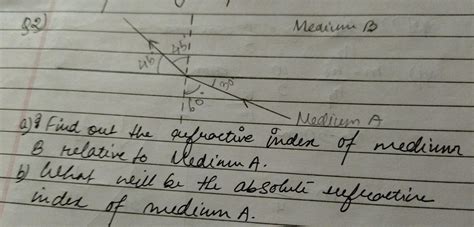 Q2)
Medium B
45°
45°
30°
60°
Medium A
a) Find out the refractive index of medium
B relative to Medium A.
b) What will be the absolute refractive
index of medium A.